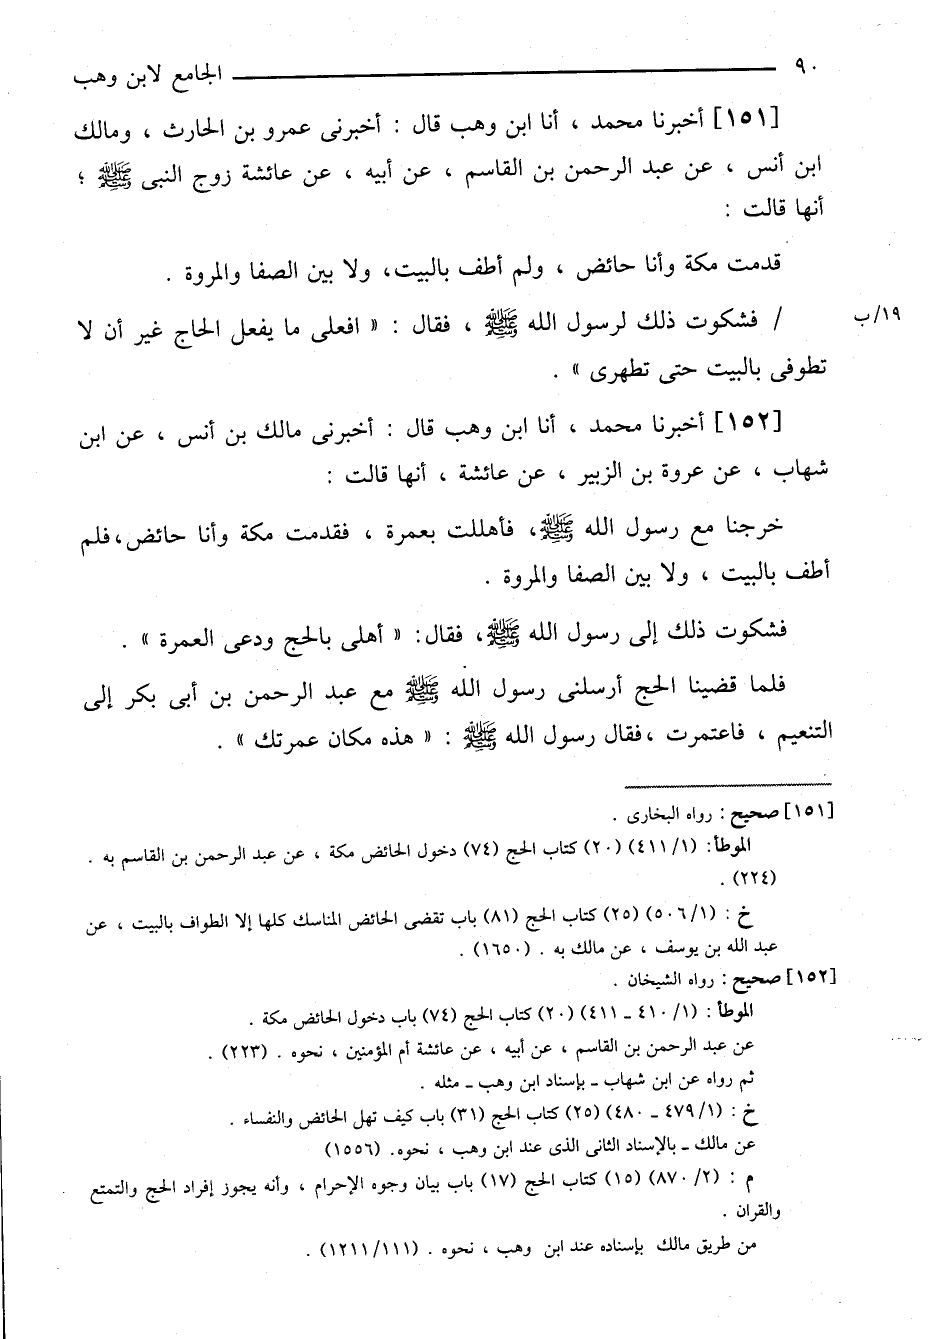 ٩٠ الجامع لابن وهب
[١٥١] أخبرنا محمد ، أنا ابن وهب قال : أخبرنى عمرو بن الحارث ، ومالك
ابن أنس ، عن عبد الرحمن بن القاسم ، عن أبيه ، عن عائشة زوج النبى ﷺ ؛
أنها قالت :
قدمت مكة وأنا حائض ، ولم أطف بالبيت، ولا بين الصفا والمروة .
١٩/ب / فشكوت ذلك لرسول الله ﷺ ، فقال : « افعلى ما يفعل الحاج غير أن لا
تطوفى بالبيت حتى تطهرى » .
[١٥٢] أخبرنا محمد ، أنا ابن وهب قال : أخبرنى مالك بن أنس ، عن ابن
شهاب ، عن عروة بن الزبير ، عن عائشة ، أنها قالت :
خرجنا مع رسول الله ﷺ، فأهللت بعمرة ، فقدمت مكة وأنا حائض، فلم
أطف بالبيت ، ولا بين الصفا والمروة .
فشكوت ذلك إلى رسول الله ﷺ، فقال: « أهلى بالحج ودعى العمرة » .
فلما قضينا الحج أرسلنى رسول الله ﷺ مع عبد الرحمن بن أبى بكر إلى
التنعيم ، فاعتمرت ،فقال رسول الله ﷺ : « هذه مكان عمرتك » .
[١٥١] صحيح : رواه البخارى .
الموطأ: (١/ ٤١١) (٢٠) كتاب الحج (٧٤) دخول الحائض مكة ، عن عبد الرحمن بن القاسم به .
(٢٢٤) .
خ : (١/ ٥٠٦) (٢٥) كتاب الحج (٨١) باب تقضى الحائض المناسك كلها إلا الطواف بالبيت ، عن
عبد الله بن يوسف ، عن مالك به . (١٦٥٠) .
[١٥٢] صحيح : رواه الشيخان .
الموطأ : (١/ ٤١٠ ـ ٤١١) (٢٠) كتاب الحج (٧٤) باب دخول الحائض مكة .
عن عبد الرحمن بن القاسم ، عن أبيه ، عن عائشة أم المؤمنين ، نحوه . (٢٢٣) .
ثم رواه عن ابن شهاب ـ بإسناد ابن وهب ـ مثله .
خ : (١/ ٤٧٩ ـ ٤٨٠) (٢٥) كتاب الحج (٣١) باب كيف تهل الحائض والنفساء .
عن مالك ـ بالإسناد الثانى الذى عند ابن وهب ، نحوه. (١٥٥٦)
م : (٢/ ٨٧٠) (١٥) كتاب الحج (١٧) باب بيان وجوه الإحرام ، وأنه يجوز إفراد الحج والتمتع
والقران .
من طريق مالك بإسناده عند ابن وهب ، نحوه . (١١١/ ١٢١١) .